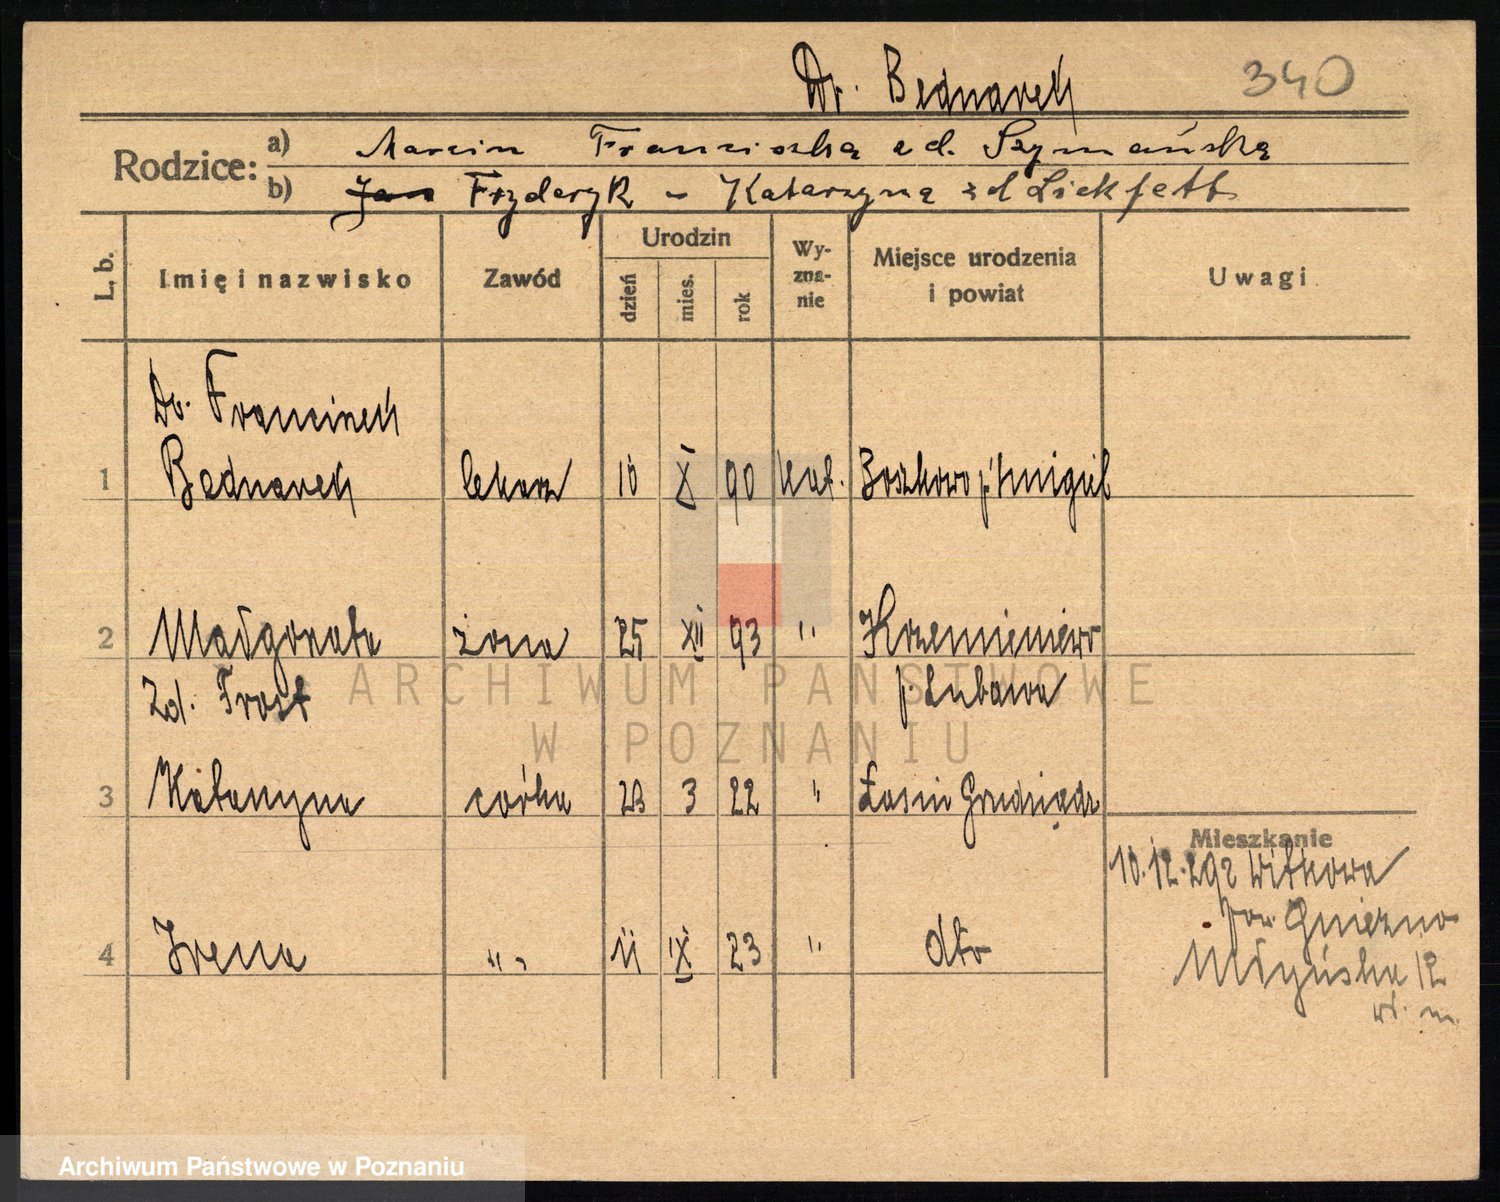 Dr. Bednarek 340
Rodzice: a) Marcin Franciszka zd. Szymańska
b) Jan Fryderyk - Katarzyna zd Lickfett
L. b. Imię i nazwisko Zawód Urodzin dzień mies. rok Wy-zna-nie Miejsce urodzenia i powiat Uwagi
Dr. Franciszek
1 Bednarek lekarz 10 X 90 kat. Boszkowo p. Śmigiel
2 Małgorzata żona 25 XII 93 " Krzemieniewo
Zd. Frost p. Lubawa
ARCHIWUM PAŃSTWOWE
W POZNANIU
3 Katarzyna córka 23 3 22 " Łasin Grudziądz
Mieszkanie
10.12.29 z Witkowa
pow. Gniezno
4 Irena " 11 IX 23 " dto
Młyńska 12
wł. m.
Archiwum Państwowe w Poznaniu